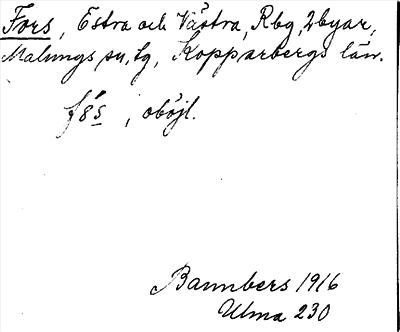 Fors, Östra och Västra, Rbg, 2 byar,
Malungs sn, tg, Kopparbergs län.
f8́s, oböjl.
Bannbers 1916
Ulma 230